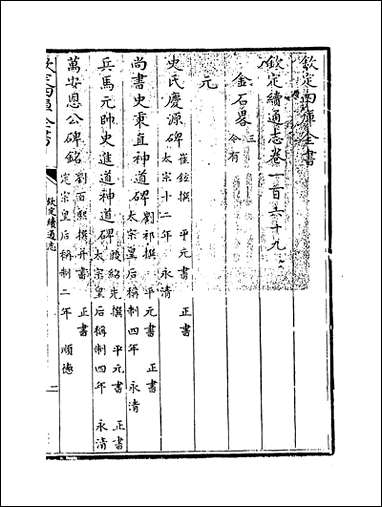 欽定四庫全書
欽定續通志卷一百六十九
金石畧 三 今有
元
史氏慶源碑 崔鉉撰 平元書 正書 太宗十二年 永清
尚書史秉直神道碑 劉祁撰 平元書 正書 太宗皇后稱制四年 永清
兵馬元帥史進道神道碑 段紹先撰 平元書 正書 太宗皇后稱制四年 永清
萬安恩公碑銘 劉百熙撰并書 正書 定宗皇后稱制二年 順德
欽定四庫全書
欽定續通志 二